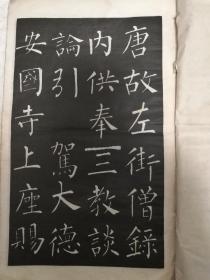 唐故左街僧録
内供奉三教談
論引駕大德
安國寺上座賜